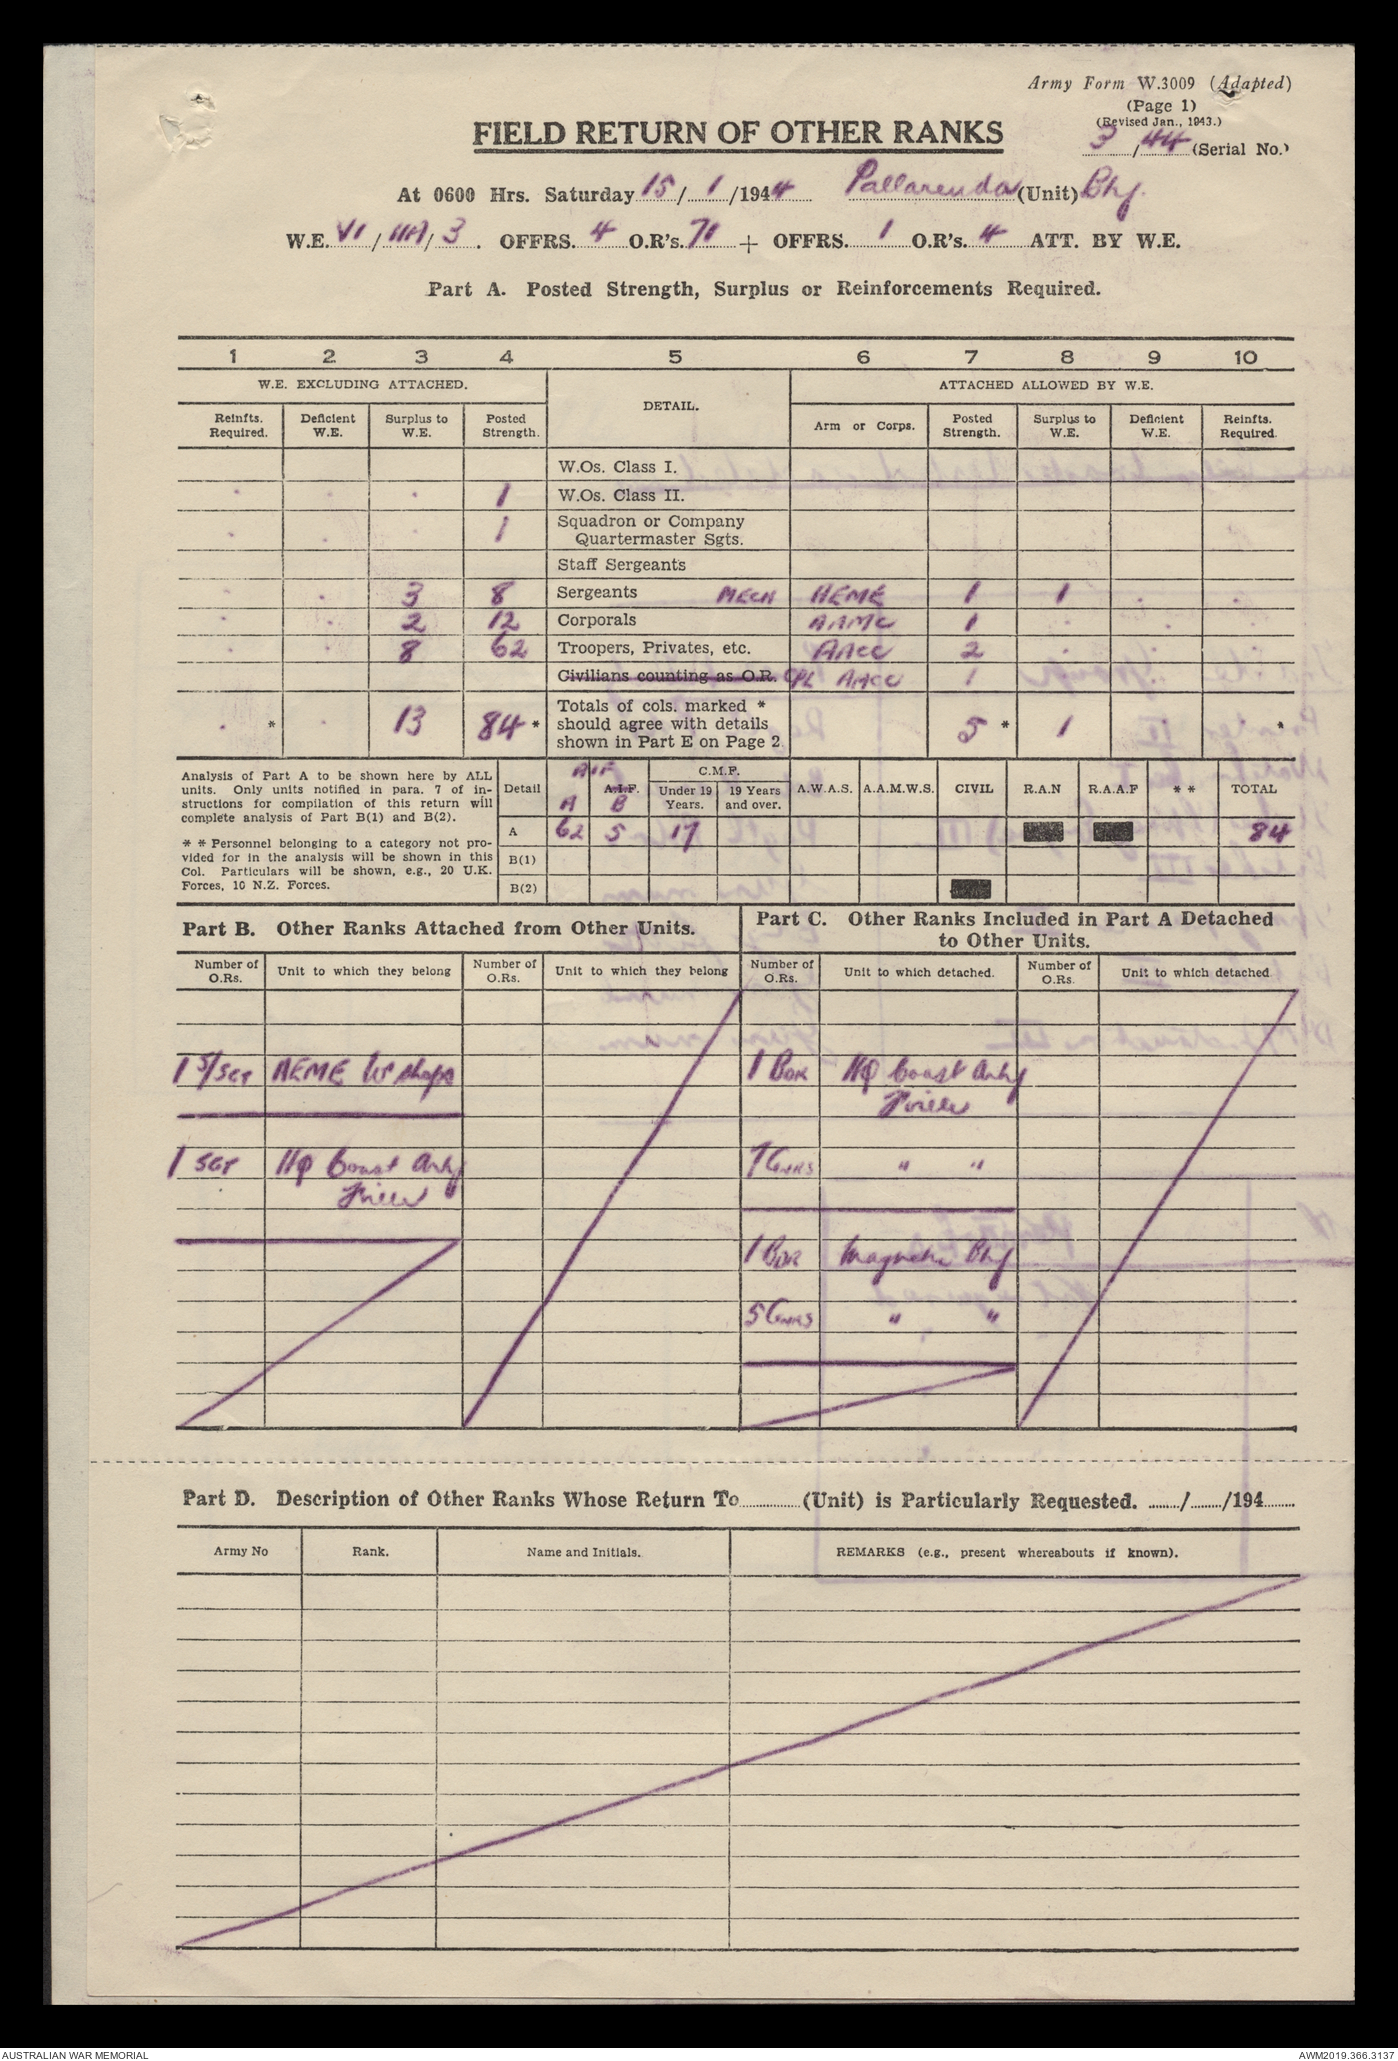 Army Form W.3009 (Adapted)
(Page 1)
(Revised Jan., 1943.)
FIELD RETURN OF OTHER RANKS
3/44 (Serial No.)
At 0600 Hrs. Saturday 15/1/1944 Pallarenda (Unit) Bty.
W.E. VI / IIA / 3. OFFRS. 4 O.R's. 71 + OFFRS. 1 O.R's. 4 ATT. BY W.E.
Part A. Posted Strength, Surplus or Reinforcements Required.
1 2 3 4 5 6 7 8 9 10
W.E. EXCLUDING ATTACHED. DETAIL. ATTACHED ALLOWED BY W.E.
Reinfts. Required. Deficient W.E. Surplus to W.E. Posted Strength. Arm or Corps. Posted Strength. Surplus to W.E. Deficient W.E. Reinfts. Required.
W.Os. Class I.
. . . 1 W.Os. Class II.
. . . 1 Squadron or Company
Quartermaster Sgts.
Staff Sergeants
. . 3 8 Sergeants MECH AEME 1 1 . .
. . 2 12 Corporals AAMC 1 . . .
. . 8 62 Troopers, Privates, etc. AACC 2
Civilians counting as O.R. CPL AACC 1
. * . 13 84 * Totals of cols. marked *
should agree with details
shown in Part E on Page 2 5 * 1 . . *
Analysis of Part A to be shown here by ALL
units. Only units notified in para. 7 of in-
structions for compilation of this return will
complete analysis of Part B(1) and B(2).
* * Personnel belonging to a category not pro-
vided for in the analysis will be shown in this
Col. Particulars will be shown, e.g., 20 U.K.
Forces, 10 N.Z. Forces.
Detail AIF A A.I.F. B C.M.F. Under 19 Years. 19 Years and over. A.W.A.S. A.A.M.W.S. CIVIL R.A.N R.A.A.F * * TOTAL
A 62 5 17 84
B(1)
B(2)
Part B. Other Ranks Attached from Other Units.
Part C. Other Ranks Included in Part A Detached
to Other Units.
Number of O.Rs. Unit to which they belong Number of O.Rs. Unit to which they belong Number of O.Rs. Unit to which detached. Number of O.Rs. Unit to which detached
1 S/SGT AEME W'shops
1 BDR HQ Coast Arty
T'ville
1 SGT HQ Coast Arty
T'ville
7 GNRS " "
1 BDR Magnetic Bty
5 GNRS " "
Part D. Description of Other Ranks Whose Return To (Unit) is Particularly Requested. / /194
Army No Rank. Name and Initials. REMARKS (e.g., present whereabouts if known).
AUSTRALIAN WAR MEMORIAL
AWM2019.366.3137